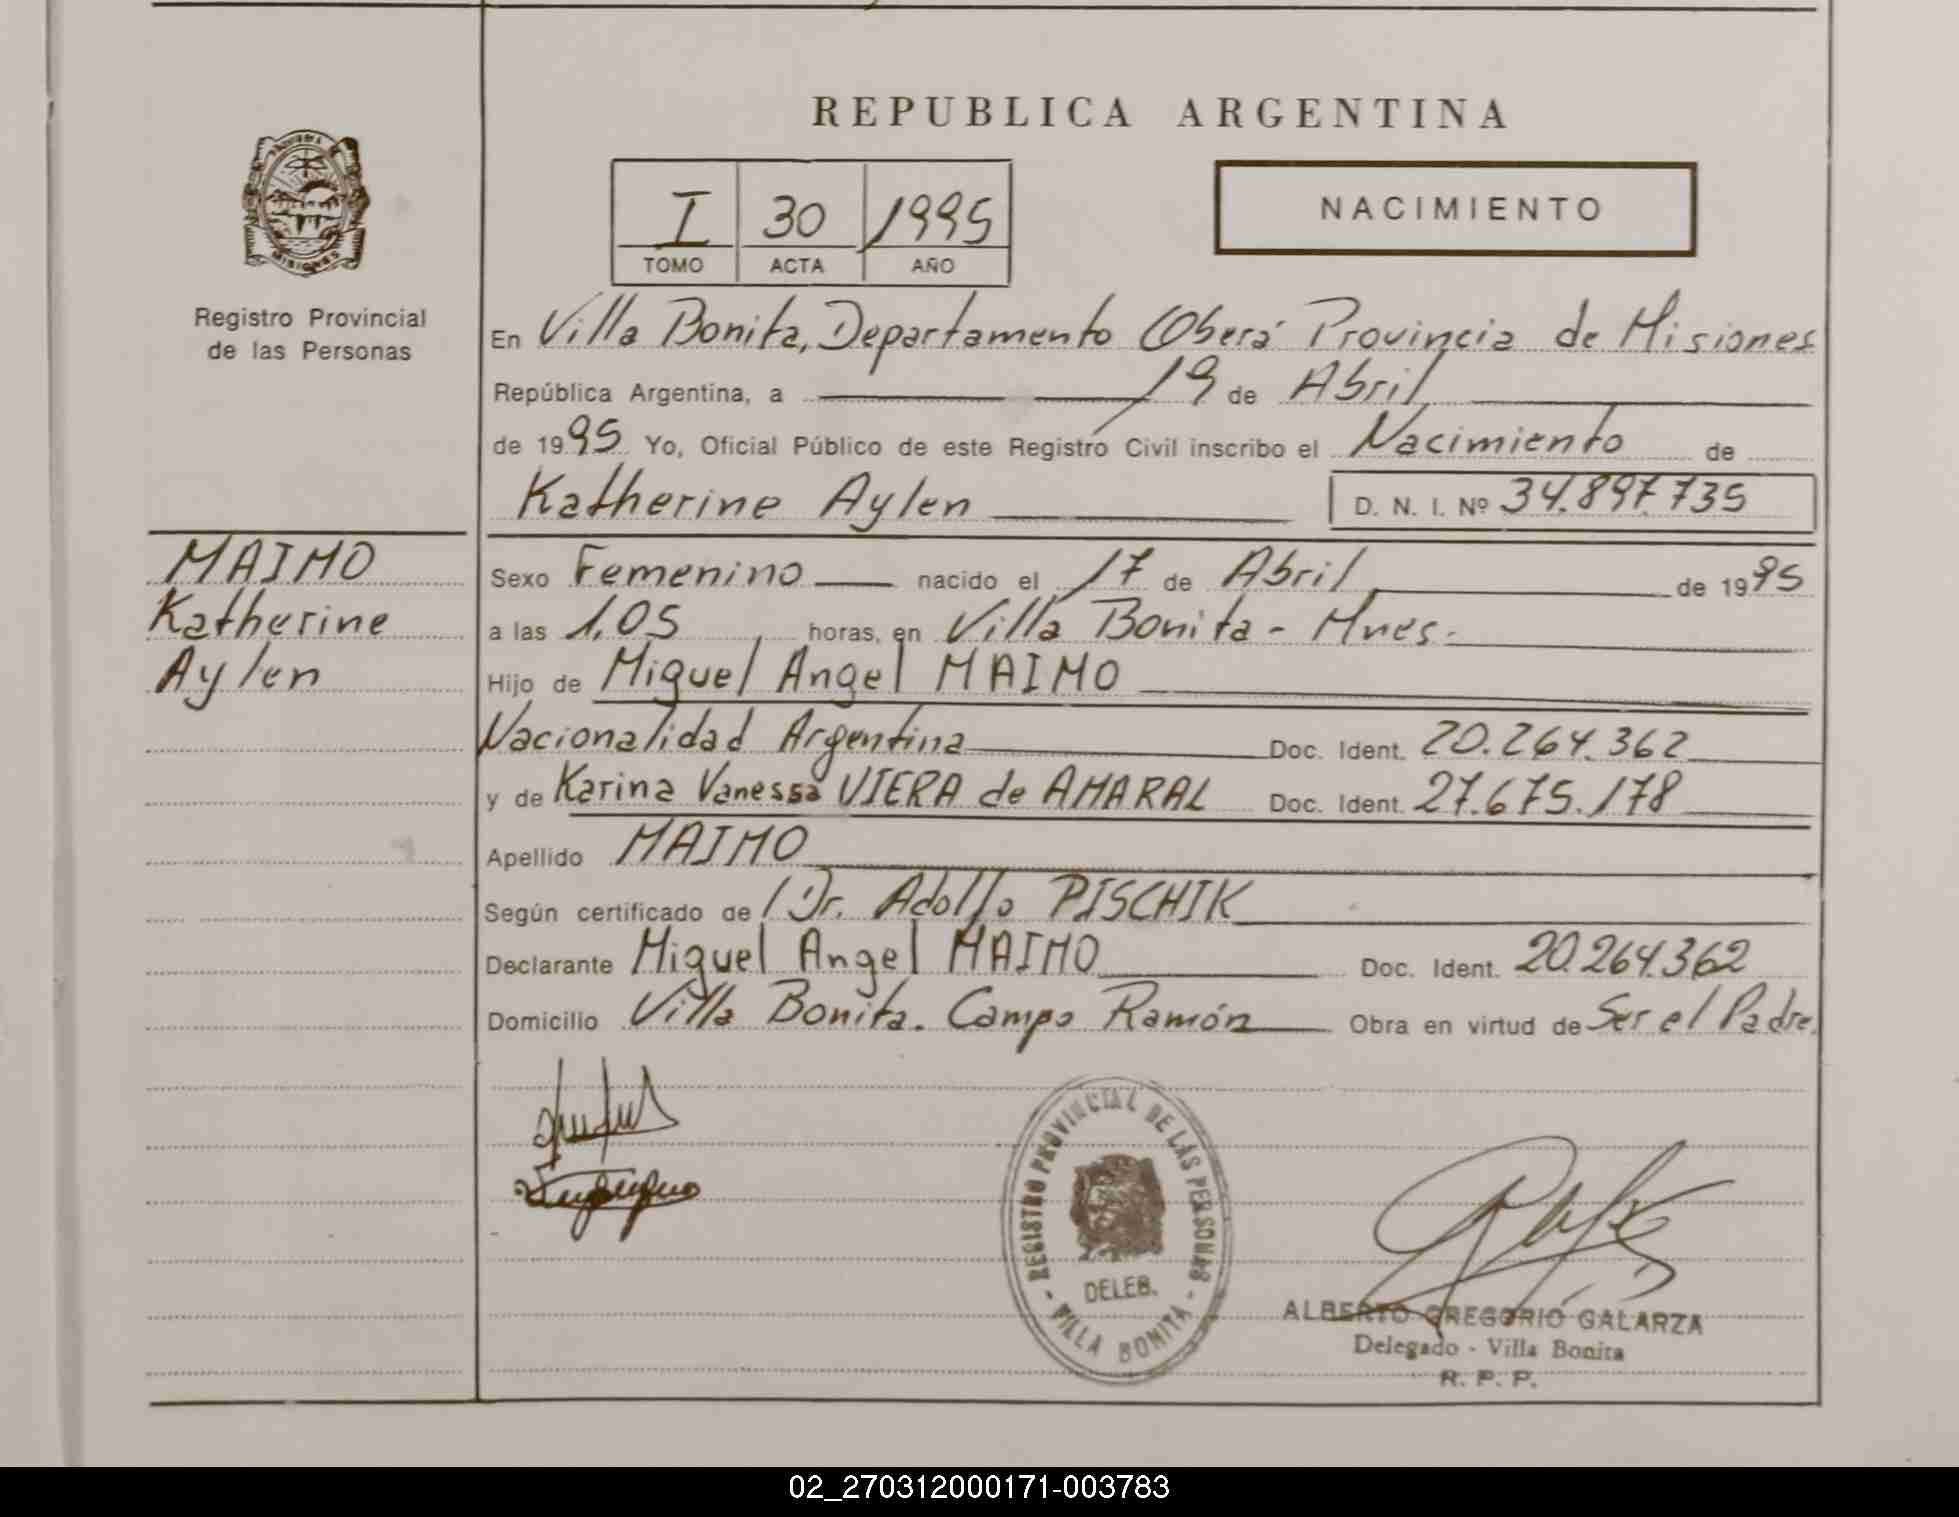 REPUBLICA ARGENTINA
I 30 1995
TOMO ACTA AÑO
NACIMIENTO
MISIONES
Registro Provincial
de las Personas
En Villa Bonita, Departamento Oberá Provincia de Misiones
República Argentina, a 19 de Abril
de 1995 Yo, Oficial Público de este Registro Civil inscribo el Nacimiento de
Katherine Aylen D. N. I. Nº 34.897.735
MAIMO
Katherine
Aylen
Sexo Femenino nacido el 17 de Abril de 1995
a las 1,05 horas, en Villa Bonita - Mnes.
Hijo de Miguel Angel MAIMO
Nacionalidad Argentina Doc. Ident. 20.264.362
y de Karina Vanessa VIERA de AMARAL Doc. Ident. 27.675.178
Apellido MAIMO
Según certificado de Dr. Adolfo PISCHIK
Declarante Miguel Angel MAIMO Doc. Ident. 20.264.362
Domicilio Villa Bonita. Campo Ramón Obra en virtud de Ser el Padre.
REGISTRO PROVINCIAL DE LAS PERSONAS
DELEG.
- VILLA BONITA -
ALBERTO GREGORIO GALARZA
Delegado - Villa Bonita
R. P. P.
02_270312000171-003783